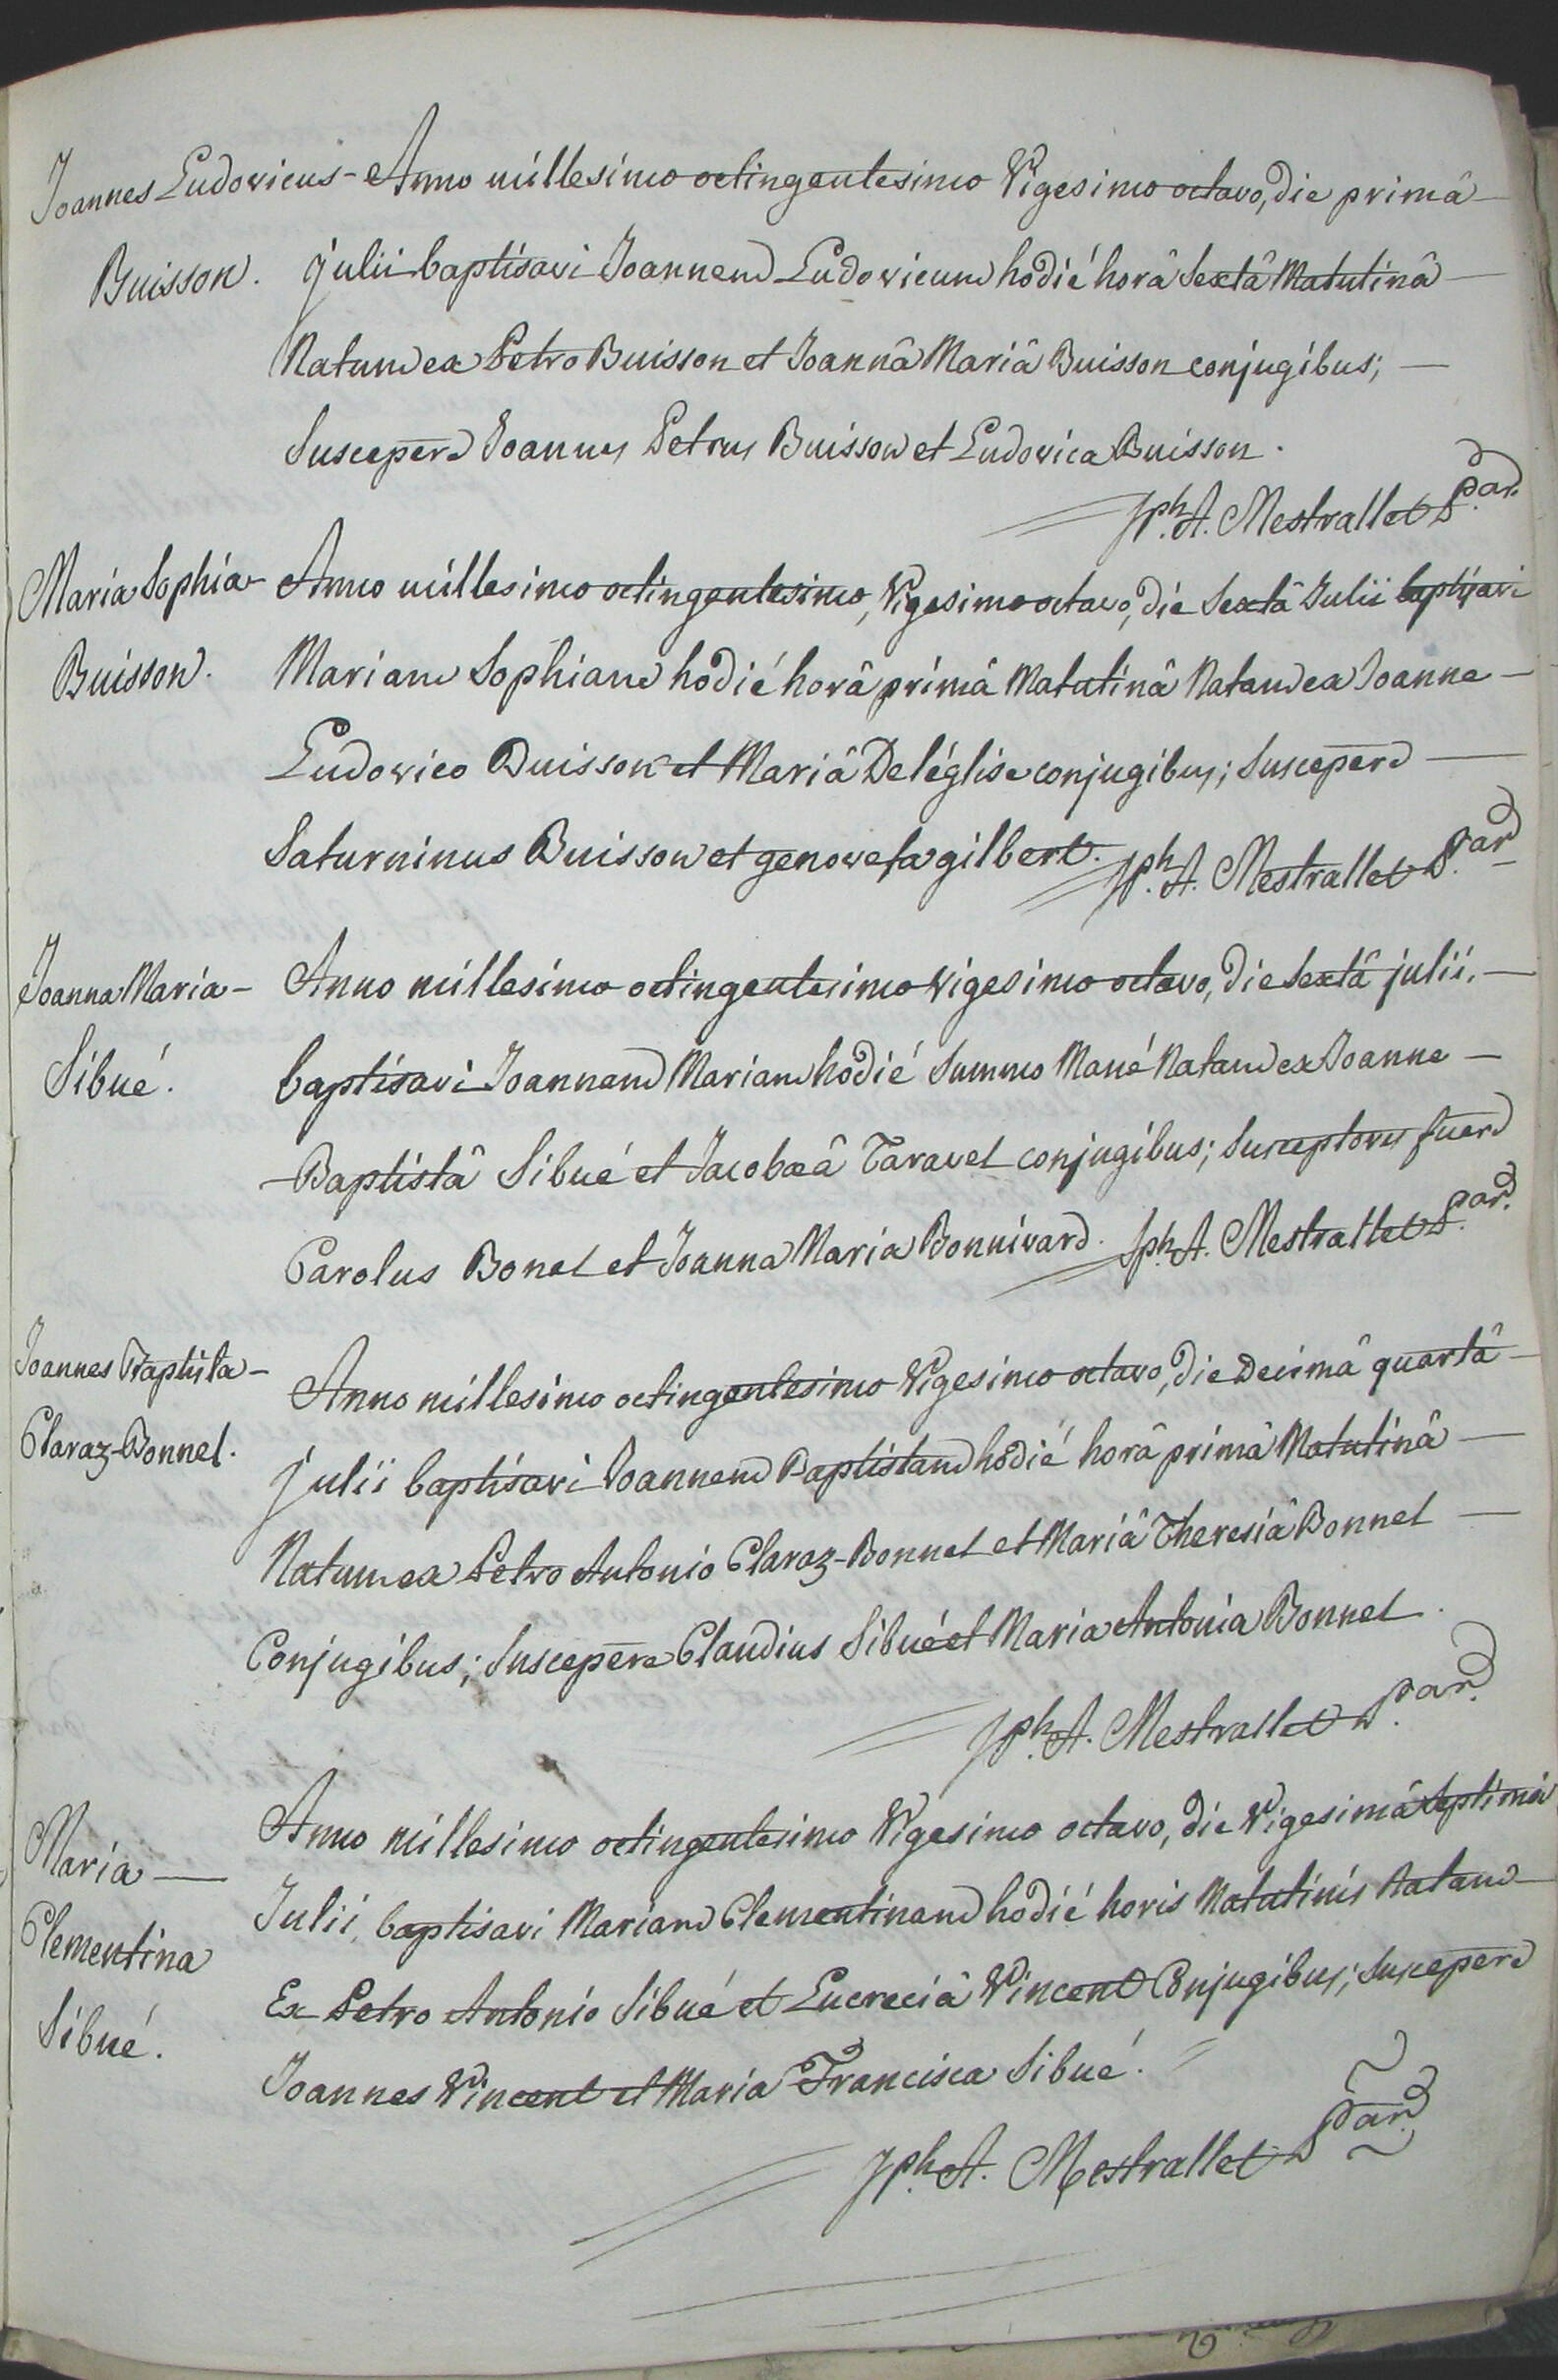 Joannes Ludovicus - Anno millesimo octingentesimo Vigesimo octavo, die primâ
Buisson. julii baptisavi Joannem Ludovicum hodié horâ sextâ Matutinâ
Natum ex Petro Buisson et Joannâ Mariâ Buisson conjugibus;
Suscepere Joannes Petrus Buisson et Ludovica Buisson.
Jph. A. Mestrallet P. ar.
Maria Sophia Anno millesimo octingentesimo, Vigesimo octavo, die sextâ Julii baptisavi
Buisson. Mariam Sophiam hodié horâ primâ Matutinâ Natam ex Joanne
Ludovico Buisson et Mariâ Deléglise conjugibus; Suscepere
Saturninus Buisson et genovefa gilbert. Jph. A. Mestrallet P. ar
Joanna Maria - Anno millesimo octingentesimo vigesimo octavo, die sextâ julii,
Sibué. baptisavi Joannam Mariam hodié Summo Mané Natam ex Joanne
Baptistâ Sibué et Jacobæâ Taravel conjugibus; Susceptores fuere
Carolus Bonel et Joanna Maria Bonnivard. Jph. A. Mestrallet P. ar.
Joannes Baptista - Anno millesimo octingentesimo Vigesimo octavo, die Decimâ quartâ
Claraz-Bonnel. julii baptisavi Joannem Baptistam hodié horâ primâ Matutinâ
Natum ex Petro Antonio Claraz-Bonnel et Mariâ Theresiâ Bonnel
Conjugibus; Suscepere Claudius Sibué et Maria Antonia Bonnel.
Jph. A. Mestrallet P. ar.
Maria Anno millesimo octingentesimo Vigesimo octavo, die Vigesimâ septimâ
Clementina Julii, baptisavi Mariam Clementinam hodié horis Matutinis Natam
Sibué. Ex Petro Antonio Sibué et Lucreciâ Vincent Conjugibus; Suscepere
Joannes Vincent et Maria Francisca Sibué.
Jph. A. Mestrallet P. ar.